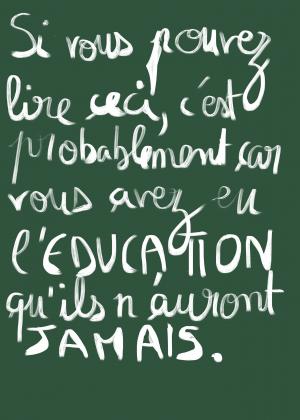 Si vous pouvez
lire ceci, c'est
probablement car
vous avez eu
l'EDUCATION
qu'ils n'auront
JAMAIS.